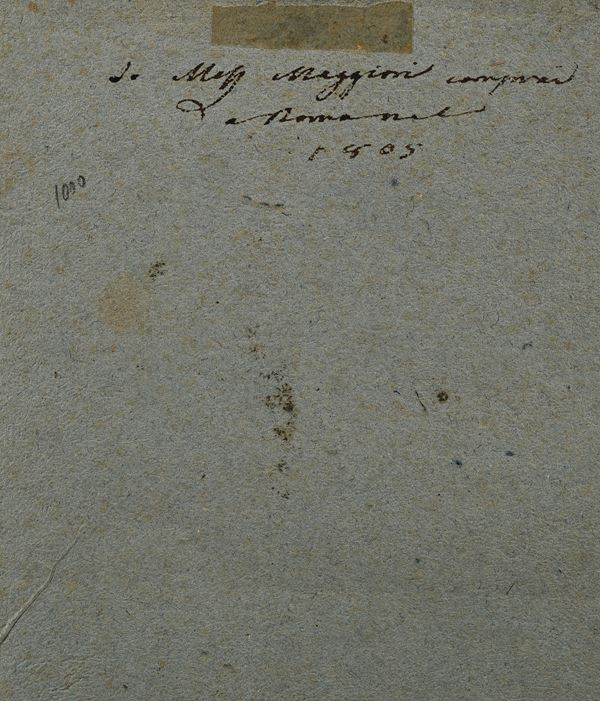 Io Aless Maggiori comprai
a Roma nel
1805
1000